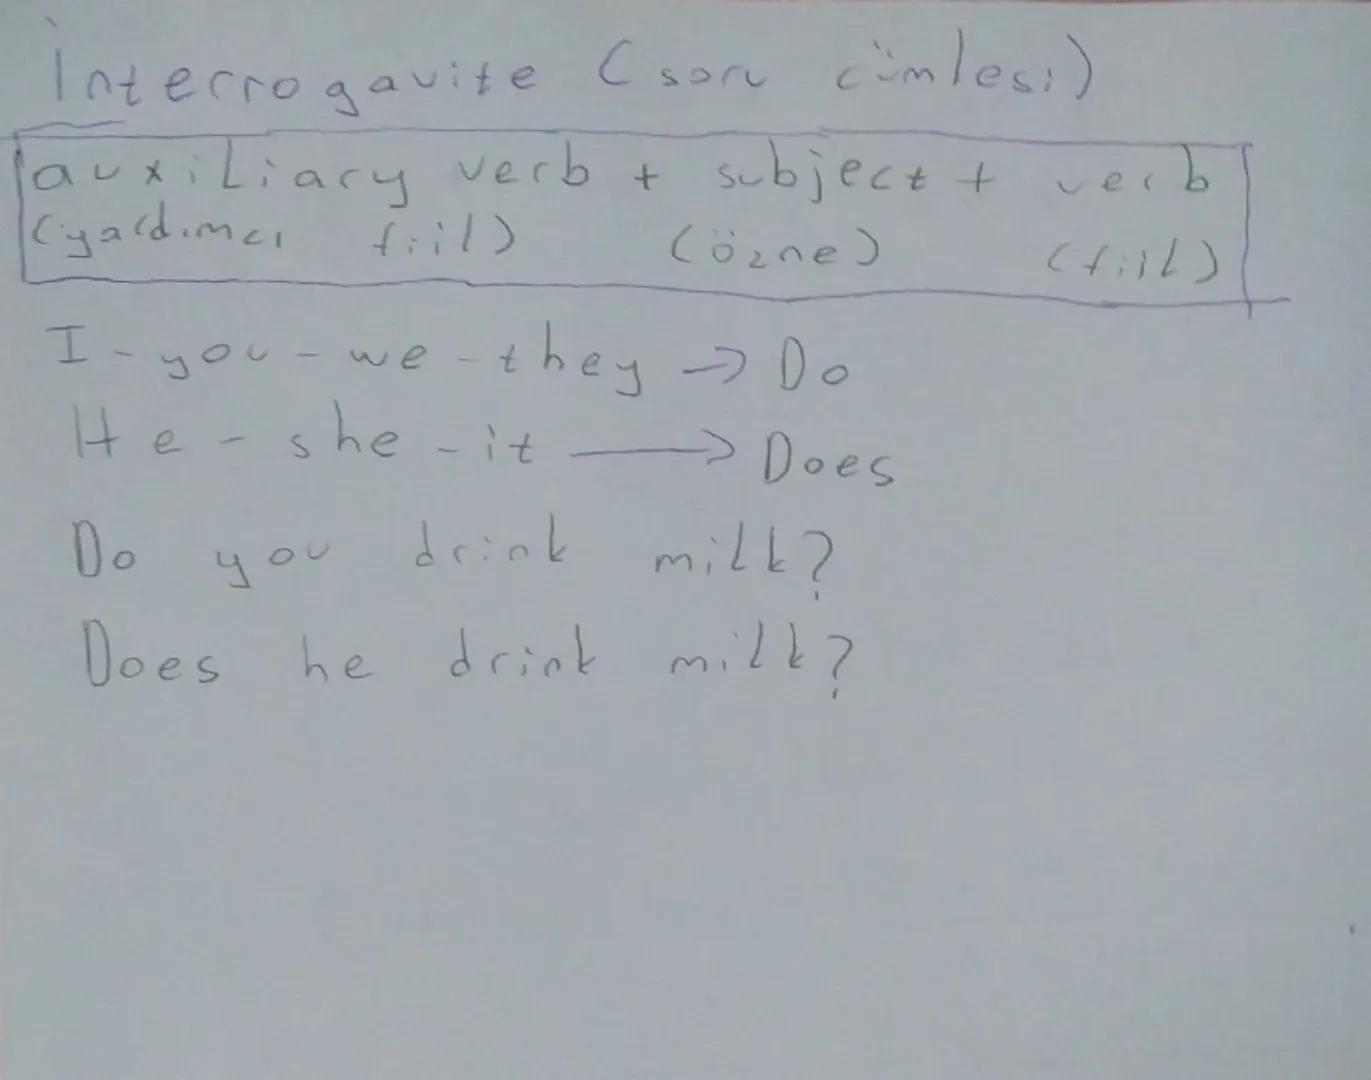 Interrogavite (soru cümlesi)
auxiliary verb + subject + verb
(yardımcı fiil) (özne) (fiil)
I - you - we - they → Do
He - she - it → Does
Do you drink milk?
Does he drink milk?